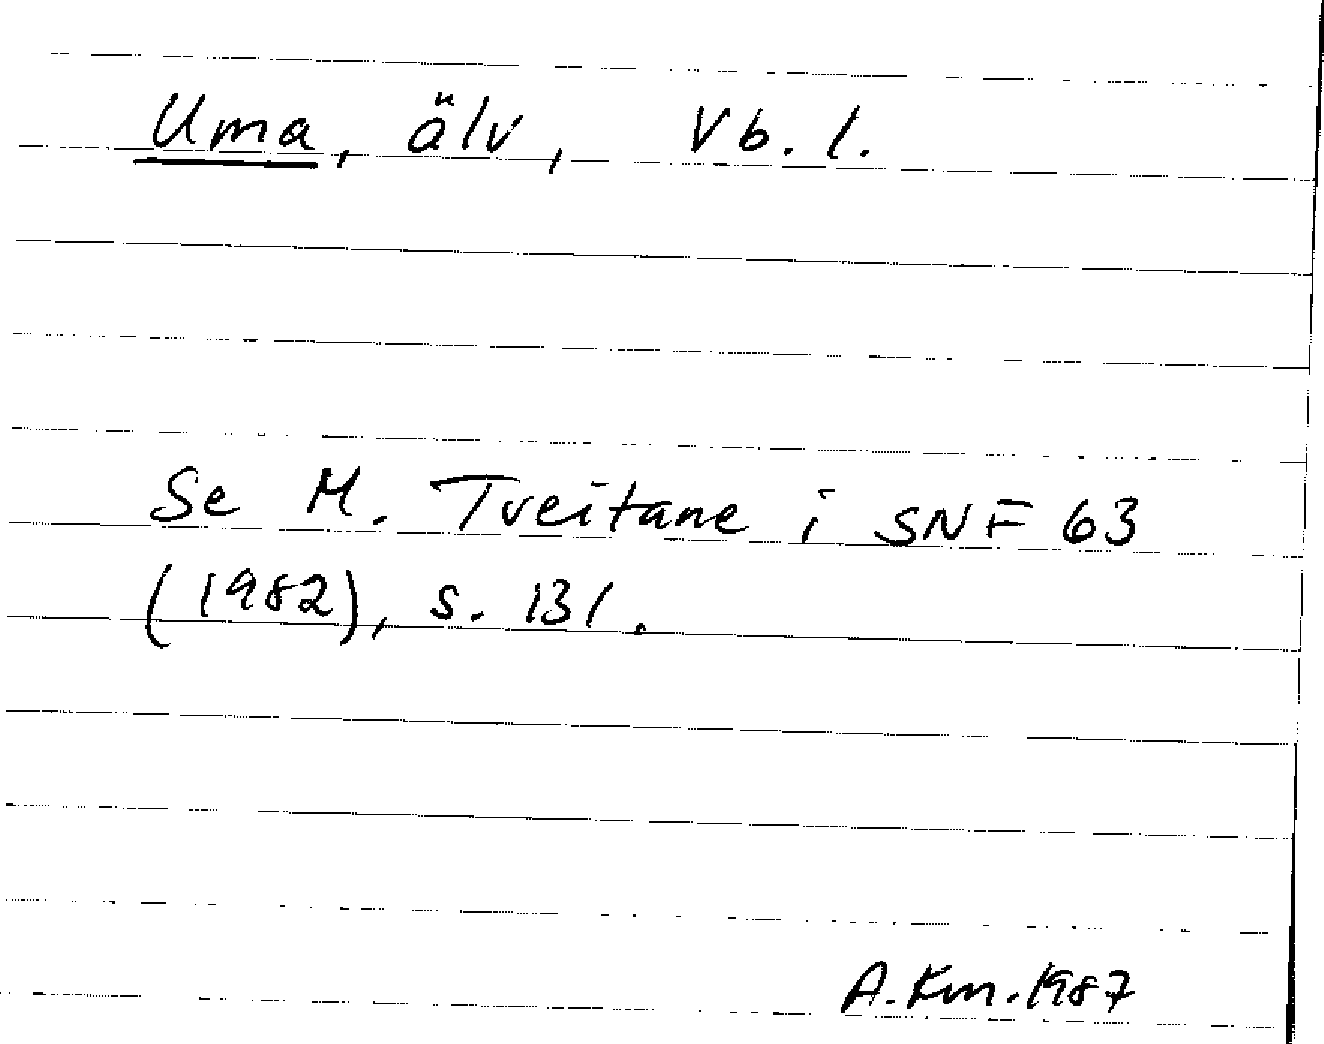 Uma, älv, Vb. l.
Se M. Tveitane i SNF 63
(1982), s. 131.
A. Km. 1987